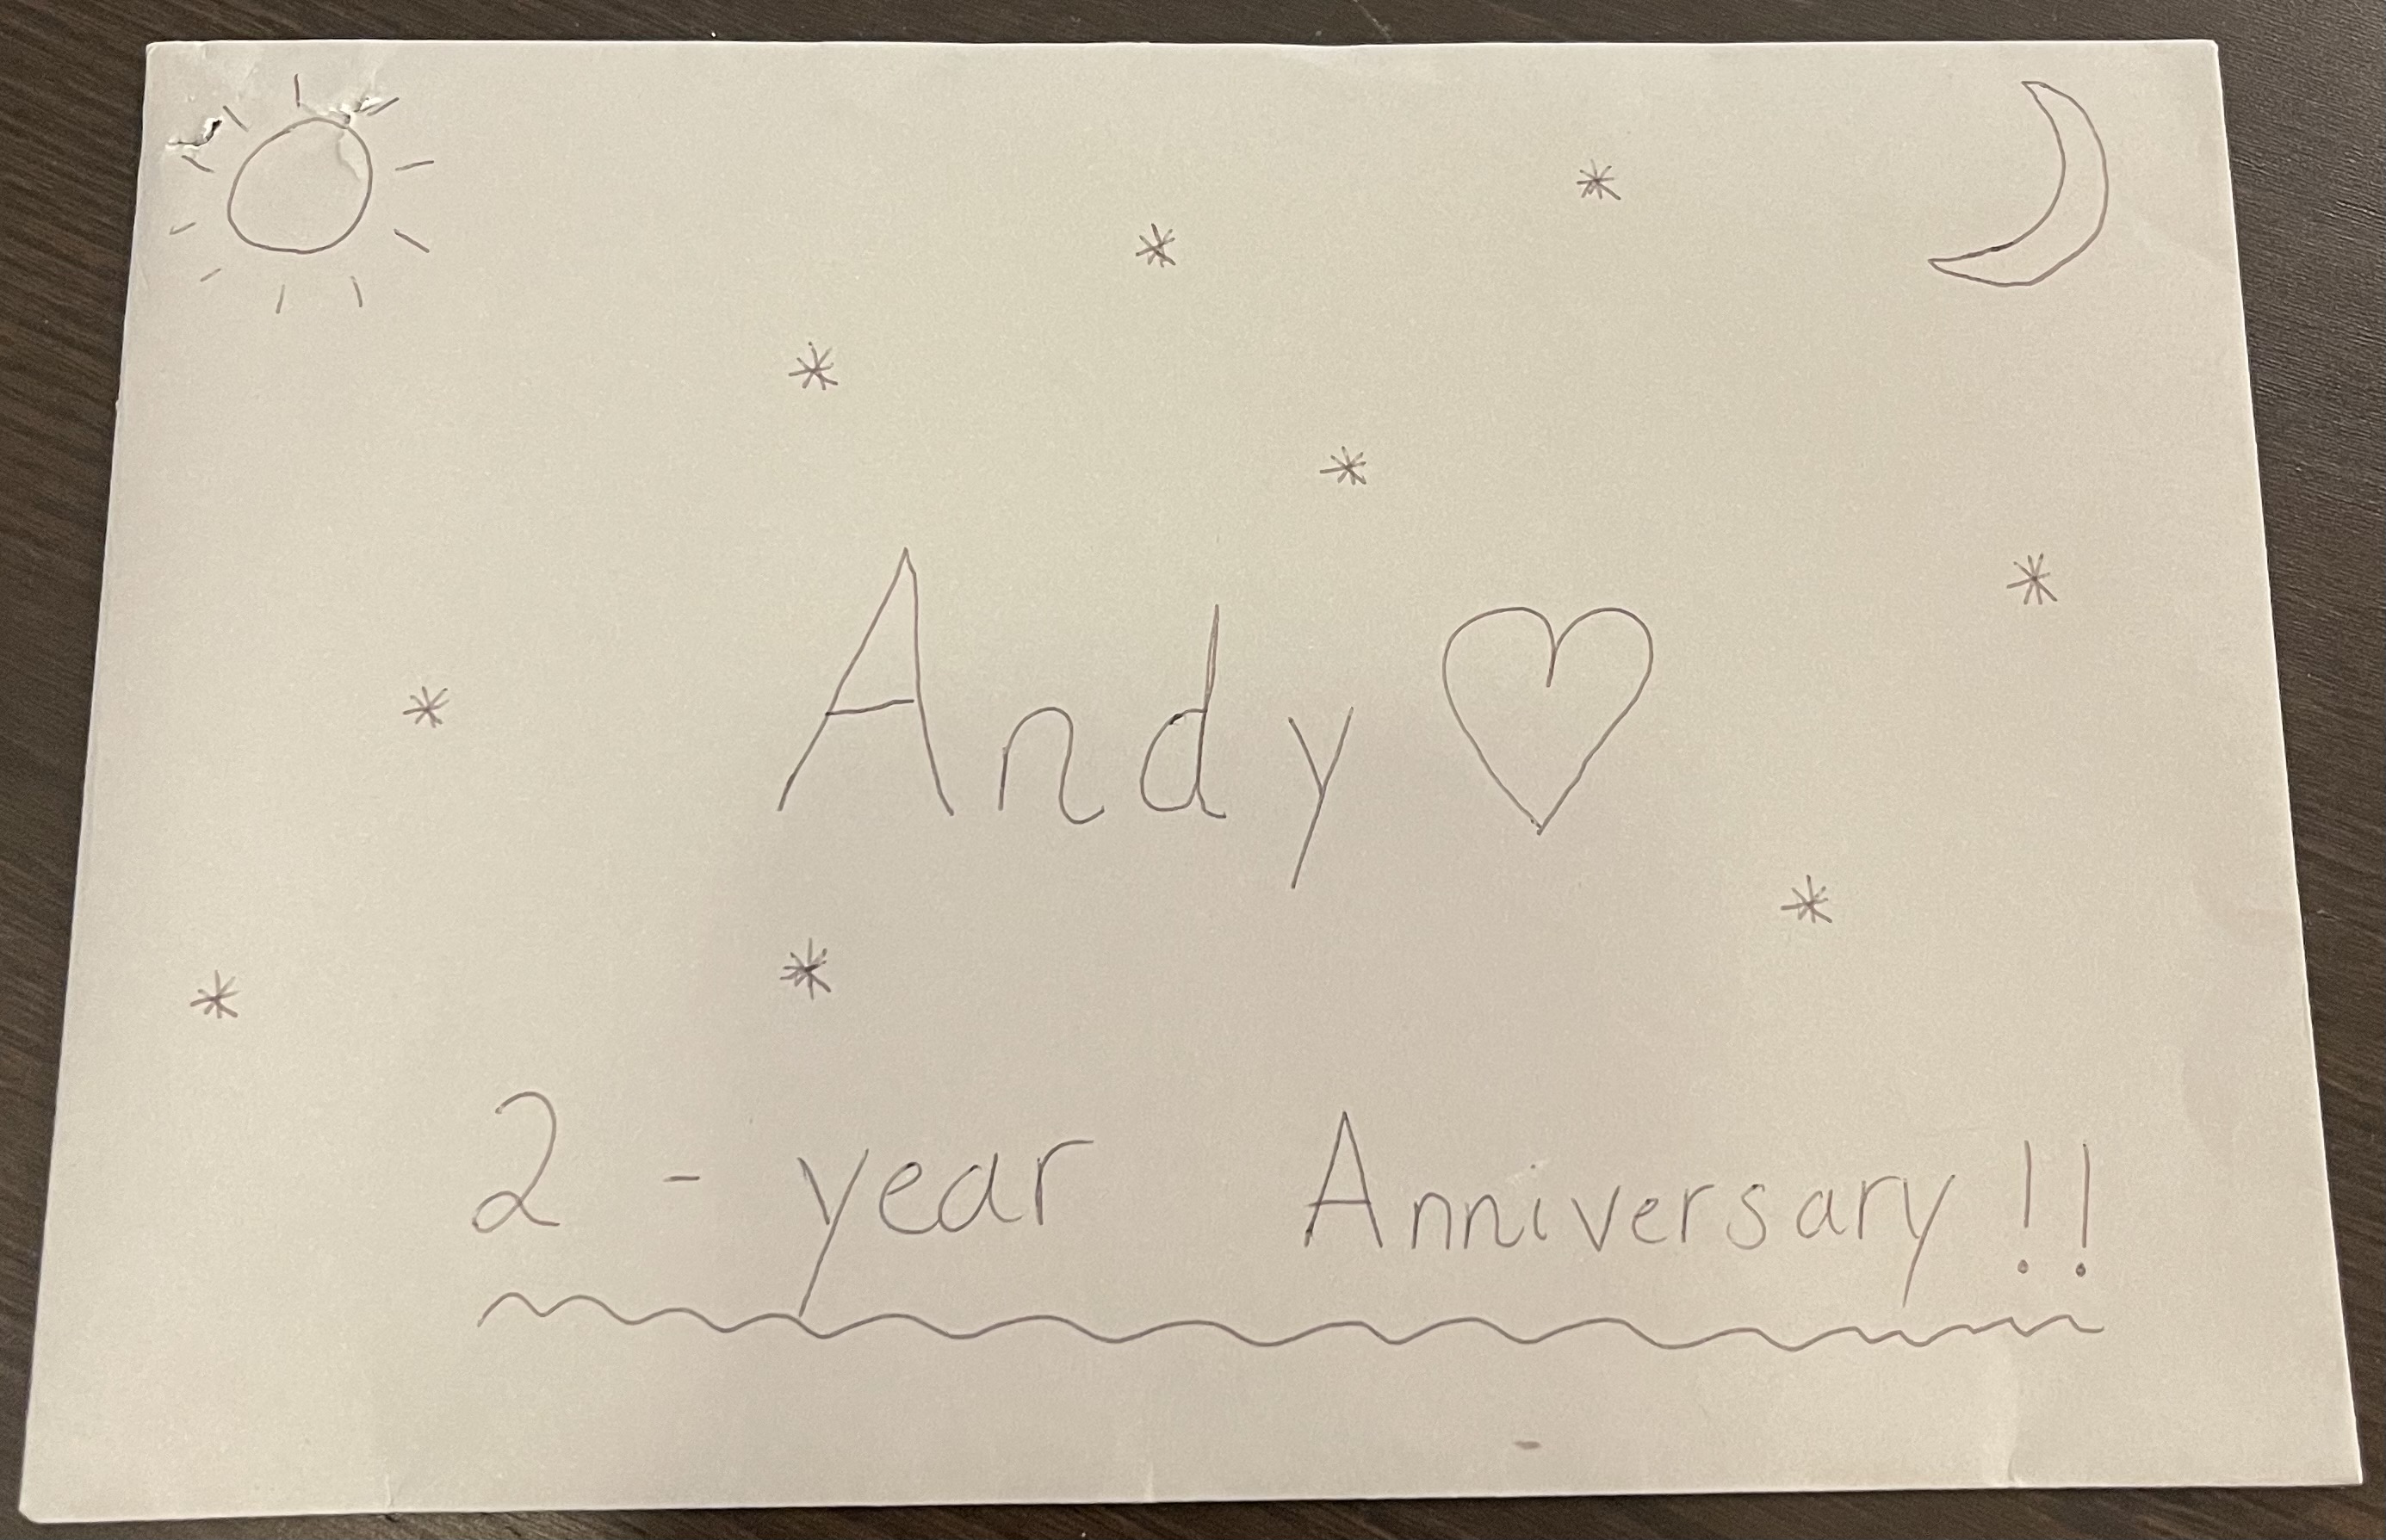 Andy ♡
2 - year Anniversary !!